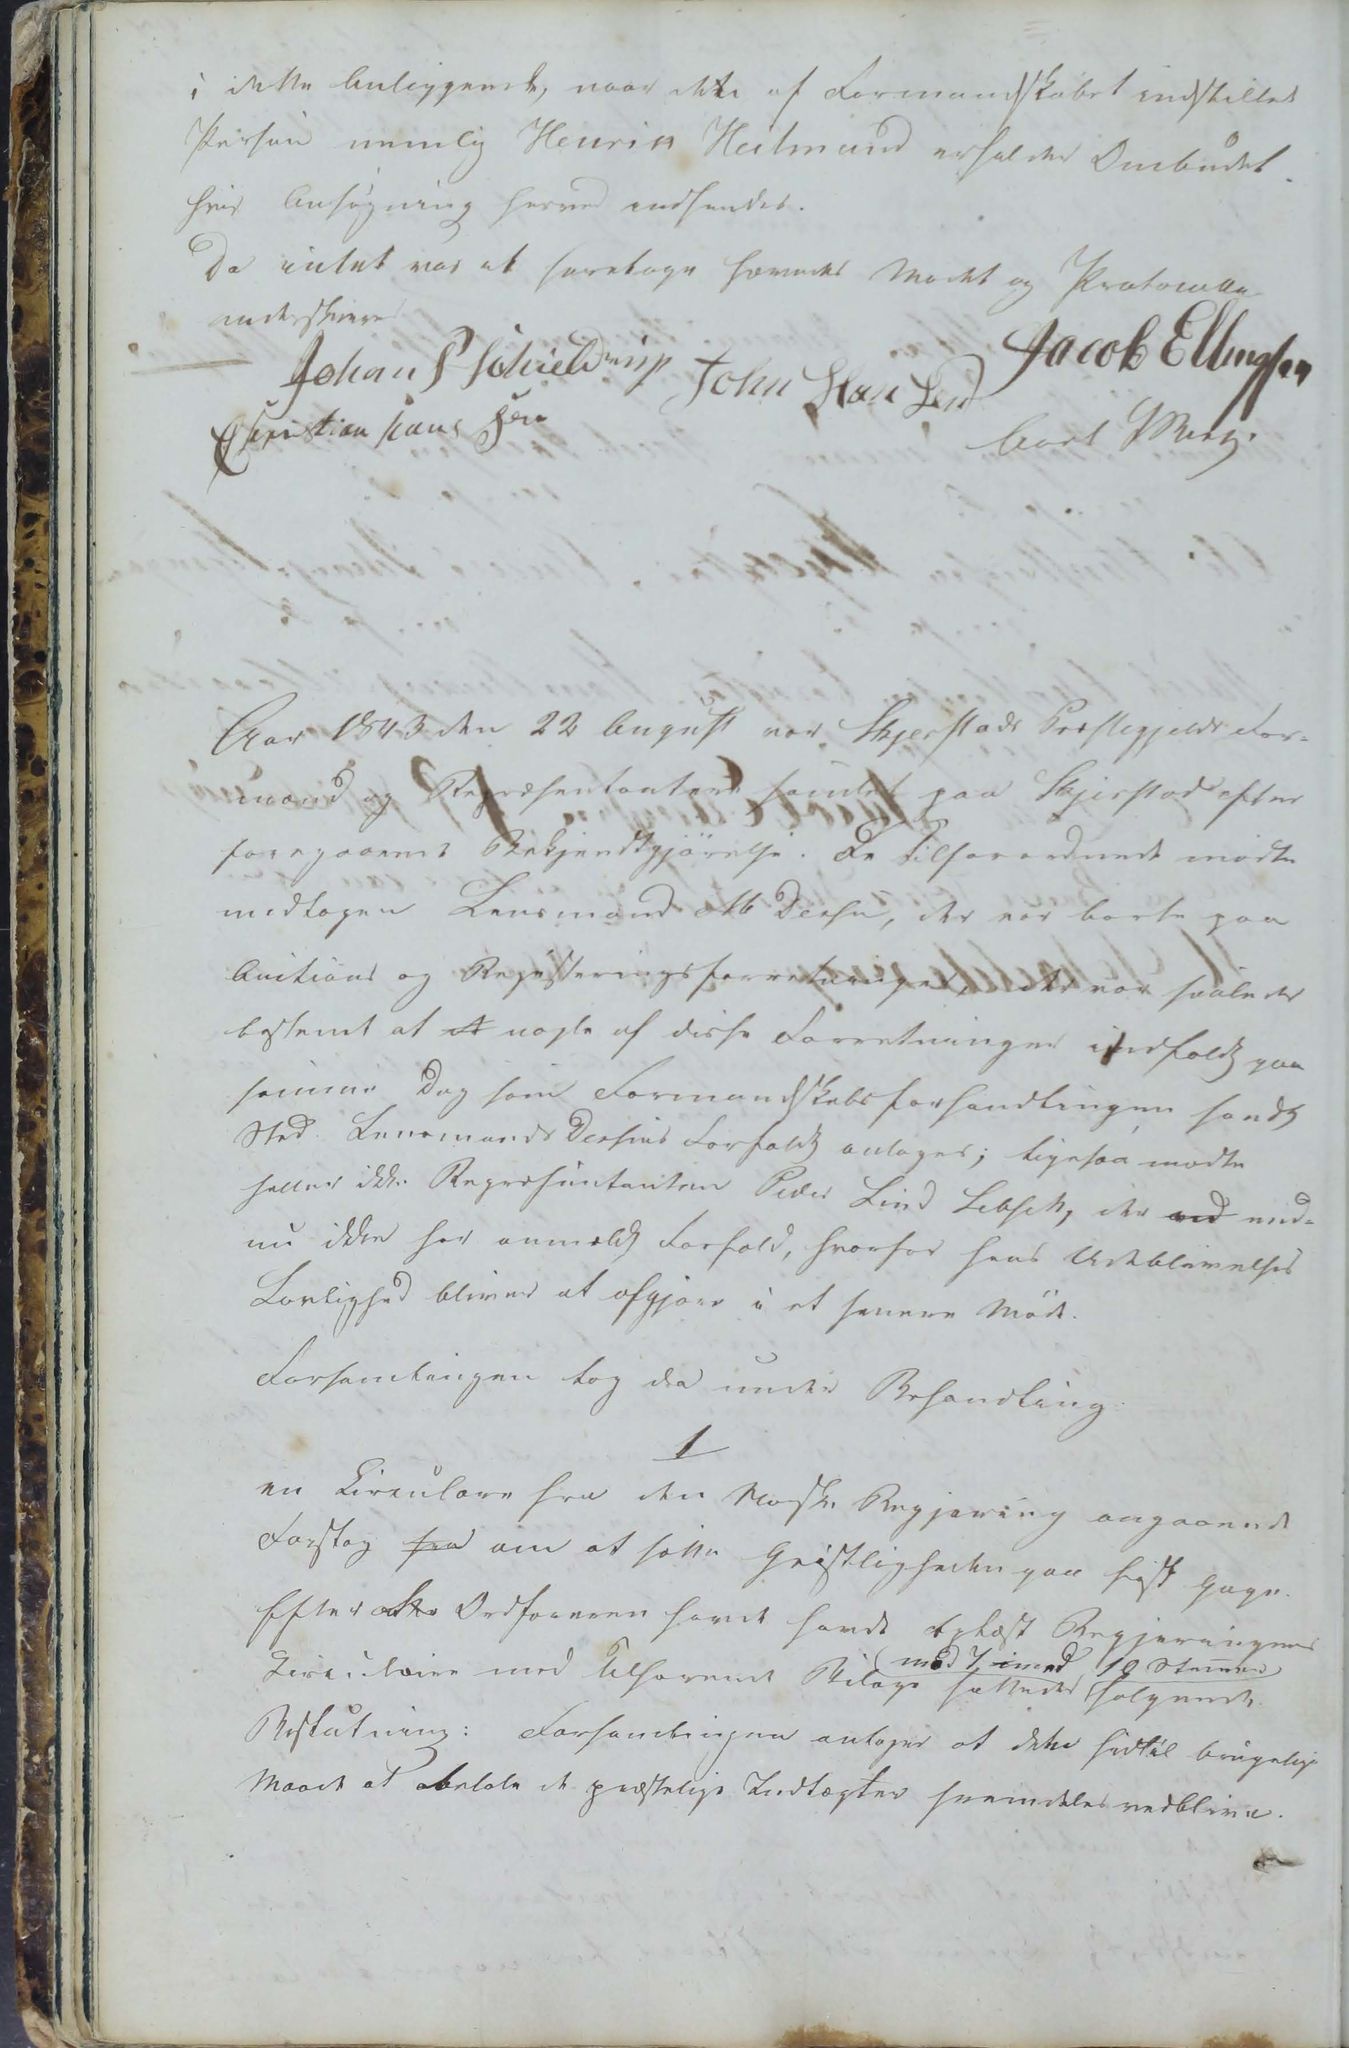 i dette Anliggende, naar dette af Formandskabet indstillet
Person nemlig Henrik Heitmand erholder Ombudet
hvis Ansøgning herved indsendes.
Da intet var at foretage hævedes Mødet og Protocollen
underskreves
Johan P Schieldrup John Jacob Ellingsen
Christian Hans Sen Carl
Aar 1843 den 22 August var Skjerstads Præstegjelds For-
mænd og Repræsentantere samlet paa Skjerstad efter
foregaaende Bekjendtgjørelse. De Tilforordnede mødte
undtagen Lensmand Dersen, der var borte paa
Auctions og Registeringsforretninger, der var saaledes
bestemt at nogle af disse Forretninger indfaldt paa
samme Dag som Formandskabsforhandlingen fandt
Sted. Lensmands Forfald antages; ligesaa mødte
heller ikke Repræsentanten Peder Lind der end-
nu ikke har anmeldt Forfald, hvorfor hans Udeblivelses
Lovlighed bliver at afgjøre i et senere Møde.
Forsamlingen tog da under Behandling:
1
en Circulære fra den Norske Regjering angaaende
Forslag fra om at sætte Geistligheden paa fast Gage.
Efter at Ordføreren havde oplæst Regjeringens
med 7 imod 10 Stemmer
Circulaire med tilhørende Bilage fattedes følgende
Beslutning: Forsamlingen antager at den hidtil brugelige
Maade at betale de præstelige Indtægter fremdeles vedbliver.